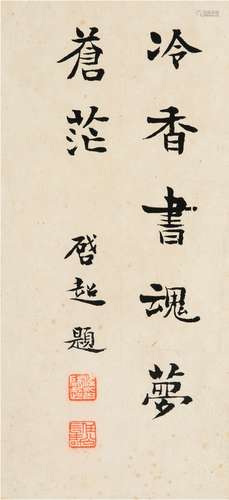 冷香書魂夢
蒼茫
啓超題